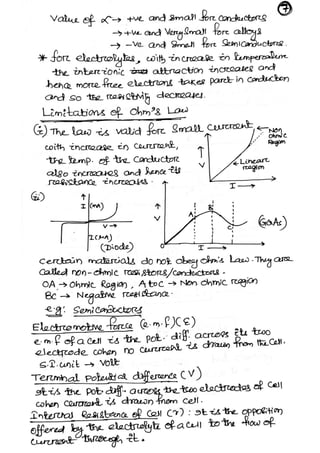 7
Value of α → +ve and small for conductors
→ +ve and Very small for alloys
→ -ve and small for semiconductors.
* for electrolytes, with increase in temperature
the interionic attraction increases and
hence more free electrons takes part in conduction
and so the resistivity decreases.
Limitations of Ohm's Law
(i) The law is valid for small current,
with increase in current,
the temp. of the conductor
also increases and hence its
resistance increases.
V
I →
Non Ohmic Region
Linear region
(ii)
I (mA)
V →
I (μA)
(Diode)
V
A
B
C
O
I →
(GaAs)
Certain materials do not obey ohm's law. They are
called non-ohmic resistors/conductors.
OA → Ohmic Region, A to C → Non ohmic region
BC → Negative resistance.
e.g: Semiconductors
Electromotive force (e.m.f) (ε)
e.m.f of a cell is the pot. diff. across its two
electrode when no current is drawn from the cell.
S.I. unit → Volt
Terminal potential difference (V)
It is the pot diff. across the two electrodes of cell
when current is drawn from cell.
Internal Resistance of cell (r) : It is the opposition
offered by the electrolyte of a cell to the flow of
current through it.